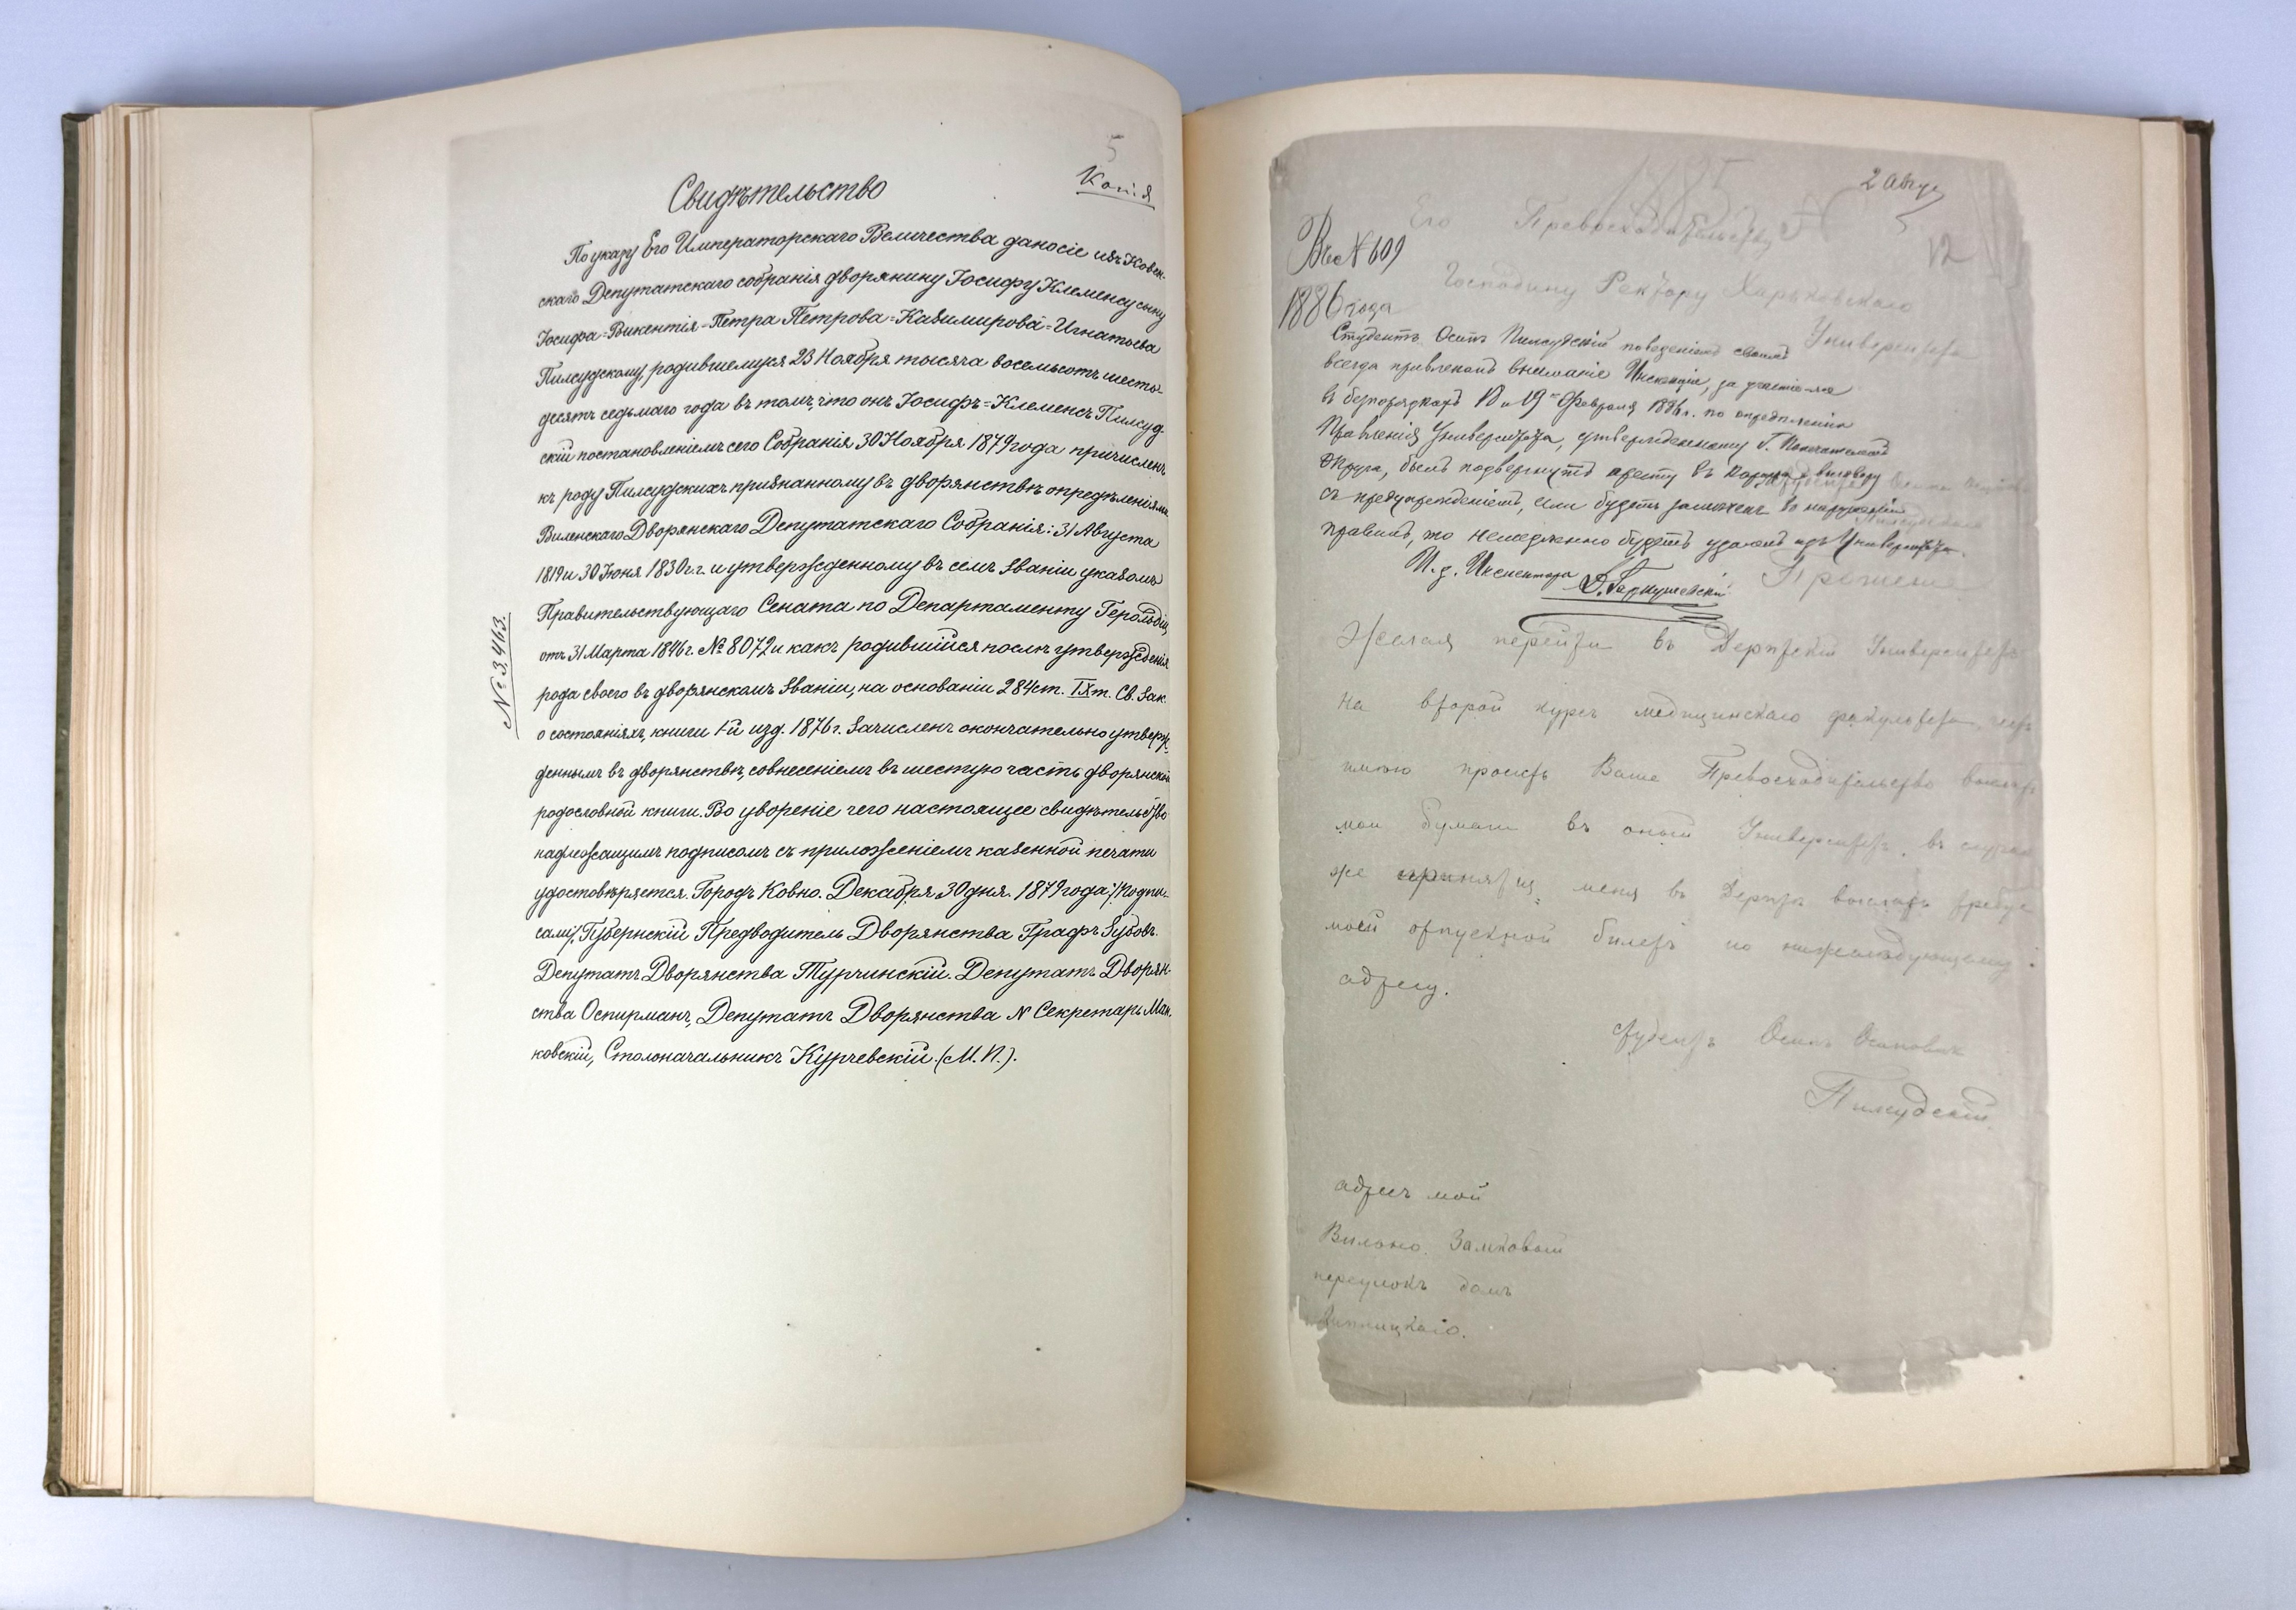 5
Копія
Свидѣтельство
По указу Его Императорскаго Величества дано сіе изъ Ковен-
скаго Депутатскаго собранія дворянину Іосифу Клеменсу сыну
Іосифа=Викентія=Петра Петрова=Казимирова=Игнатьева
Пилсудскому, родившемуся 23 Ноября тысяча восемьсотъ шесть-
десятъ седьмаго года въ томъ, что онъ Іосифъ=Клеменсъ Пилсуд-
скій постановленіемъ сего Собранія 30 Ноября 1879 года причисленъ
къ роду Пилсудскихъ признанному въ дворянствѣ опредѣленіями
Виленскаго Дворянскаго Депутатскаго Собранія: 31 Августа
1819 и 30 Іюня 1830 г.г. и утвержденному въ семъ званіи указомъ
Правительствующаго Сената по Департаменту Герольдіи,
отъ 31 Марта 1846 г. № 8072 и какъ родившійся послѣ утвержденія
рода своего въ дворянскомъ званіи, на основаніи 284 ст. IX т. Св. Зак.
о состояніяхъ, книги 1-й изд. 1876 г. зачисленъ окончательно утверж-
деннымъ въ дворянствѣ, со внесеніемъ въ шестую часть дворянской
родословной книги. Во увѣреніе чего настоящее свидѣтельство
надлежащимъ подписомъ съ приложеніемъ казенной печати
удостовѣряется. Городъ Ковно. Декабря 30 дня. 1879 года: /Подпи-
сали/, Губернскій Предводитель Дворянства Графъ Зубовъ.
Депутатъ Дворянства Турчинскій. Депутатъ Дворян-
ства Оспирманъ, Депутатъ Дворянства N Секретарь Мак-
ковскій, Столоначальникъ Курчевскій. (М. П.).
№ 3.463.
2 Авгу
12
Его Превосходительству
Вх № 609
Господину Ректору Харьковскаго
1886 года
Университета
Студентъ Осипъ Пилсудскій поведеніемъ своимъ
всегда привлекалъ вниманіе Инспекціи, за участіе
въ безпорядкахъ 18 и 19 Февраля 1886 г. по опредѣленію
Правленія Университета, утвержденному Г. Попечителемъ
Округа, былъ подвергнутъ аресту въ карцерѣ и выговору
съ предупрежденіемъ, если будетъ замѣченъ въ нарушеніи
правилъ, то немедленно будетъ удаленъ изъ Университета.
И. д. Инспектора
Прошеніе
Желая перейти въ Дерптскій Университетъ
на второй курсъ медицинскаго факультета, честь
имѣю просить Ваше Превосходительство выслать
мои бумаги въ оный Университетъ, въ случаѣ
же принятія меня въ Дерптъ выслать
мой отпускной билетъ по нижеслѣдующему
адресу.
Студентъ Осипъ Осиповичъ
Пилсудскій
адресъ мой
Вильно. Замковый
переулокъ домъ